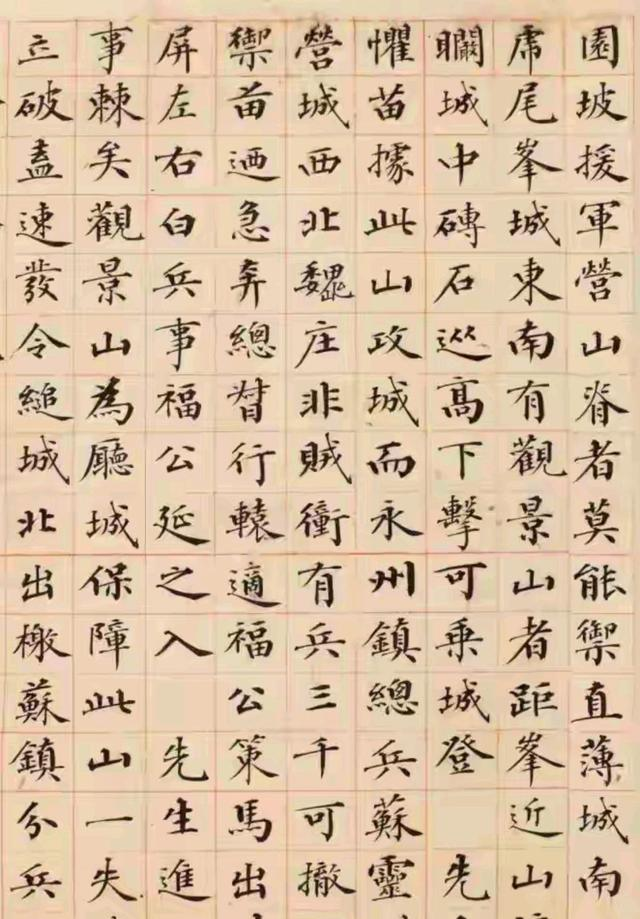 園坡援軍營山脊者莫能禦直薄城南
席尾峯城東南有觀景山者距峯近山
矙城中磚石巡高下擊可乗城登 先
懼苗據此山攻城而永州鎮總兵蘇靈
營城西北魏庄非賊衝有兵三千可撤
禦苗迺急弃總督行轅適福公策馬出
屏左右白兵事福公延之入 先生進
事棘矣觀景山為廳城保障此山一失
立破盍速發令縋城北出檄蘇鎮分兵